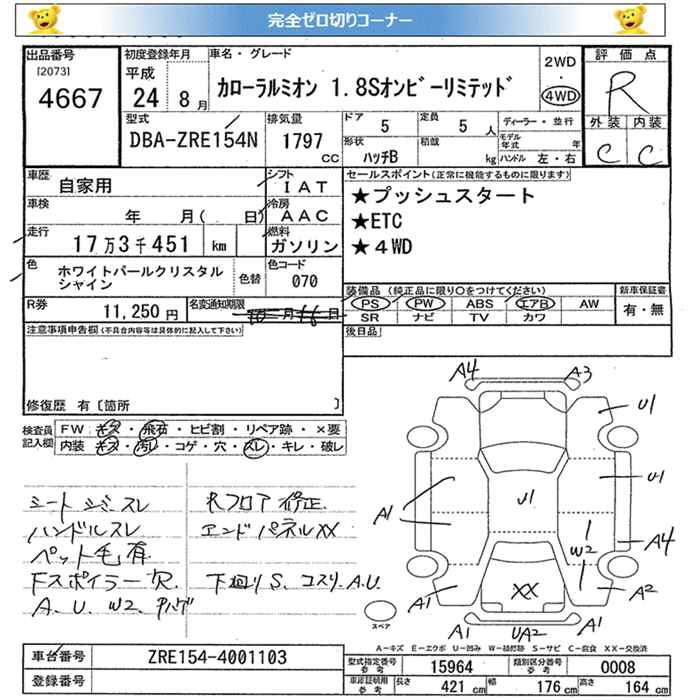 完全ゼロ切りコーナー
出品番号
[2073]
4667
初度登録年月
平成
24 8月
車名・グレード
カローラルミオン 1.8Sオンビーリミテッド
2WD
・
4WD
評価点
R
外装 内装
C C
型式
DBA-ZRE154N
排気量
1797
cc
ドア
5
定員
5 人
ディーラー・並行
モデル
年式 年
形状
ハッチB
積載
kg
ハンドル 左・右
車歴
自家用
シフト
IAT
車検
年 月( 日)
冷房
AAC
走行
17万3千451 km
燃料
ガソリン
色
ホワイトパールクリスタル
シャイン
色替
色コード
070
R券
11,250 円
名変通知期限
10月16日
セールスポイント(正常に機能するものに限ります)
★プッシュスタート
★ETC
★4WD
装備品 (純正品に限り○をつけてください)
PS PW ABS エアB AW
SR ナビ TV カワ
新車保証書
有・無
後日品
注意事項申告欄(不具合内容等は具体的に記入して下さい)
修復歴 有〔箇所 〕
検査員
記入欄
FW キズ・飛石・ヒビ割・リペア跡・×要
内装 キズ・汚レ・コゲ・穴・スレ・キレ・破レ
シート シミ スレ
ハンドルスレ
ペット毛有
Fスポイラー欠
A、U、W2、
Rフロア修正
エンドパネルXX
下廻りS、コスリ、A.U
A4 A3
U1
A1 U1 U1
A4
W2
A1 XX A2
A1 UA2 A1
スペア
A-キズ E-エクボ U-凹み W-補修跡 S-サビ C-腐食 XX-交換済
車台番号
ZRE154-4001103
登録番号
型式指定番号
参考
15964
類別区分番号
参考
0008
車庫証明用
参考
長さ 421 cm
幅 176 cm
高さ 164 cm